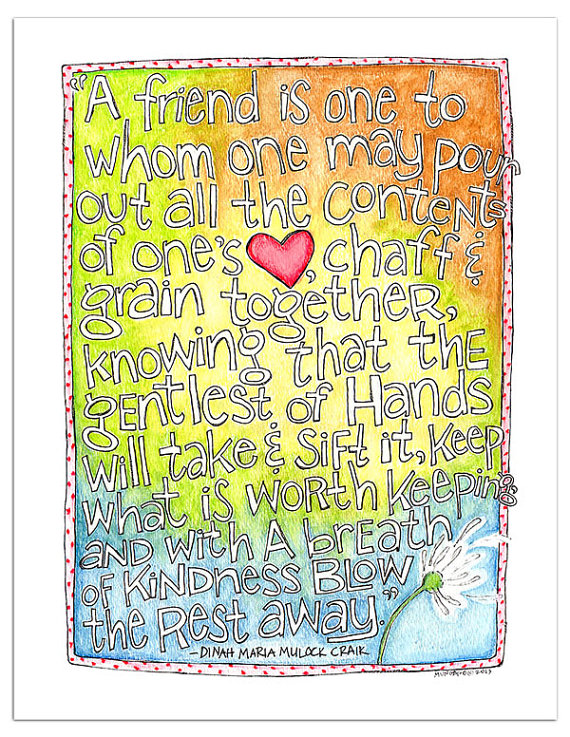 "A friend is one to
whom one may pour
out all the contents
of one's ♥, chaff &
grain together,
knowing that the
gentlest of Hands
will take & sift it, keep
what is worth keeping
and with A breath
of kindness Blow
the Rest away."
-DINAH MARIA MULOCK CRAIK